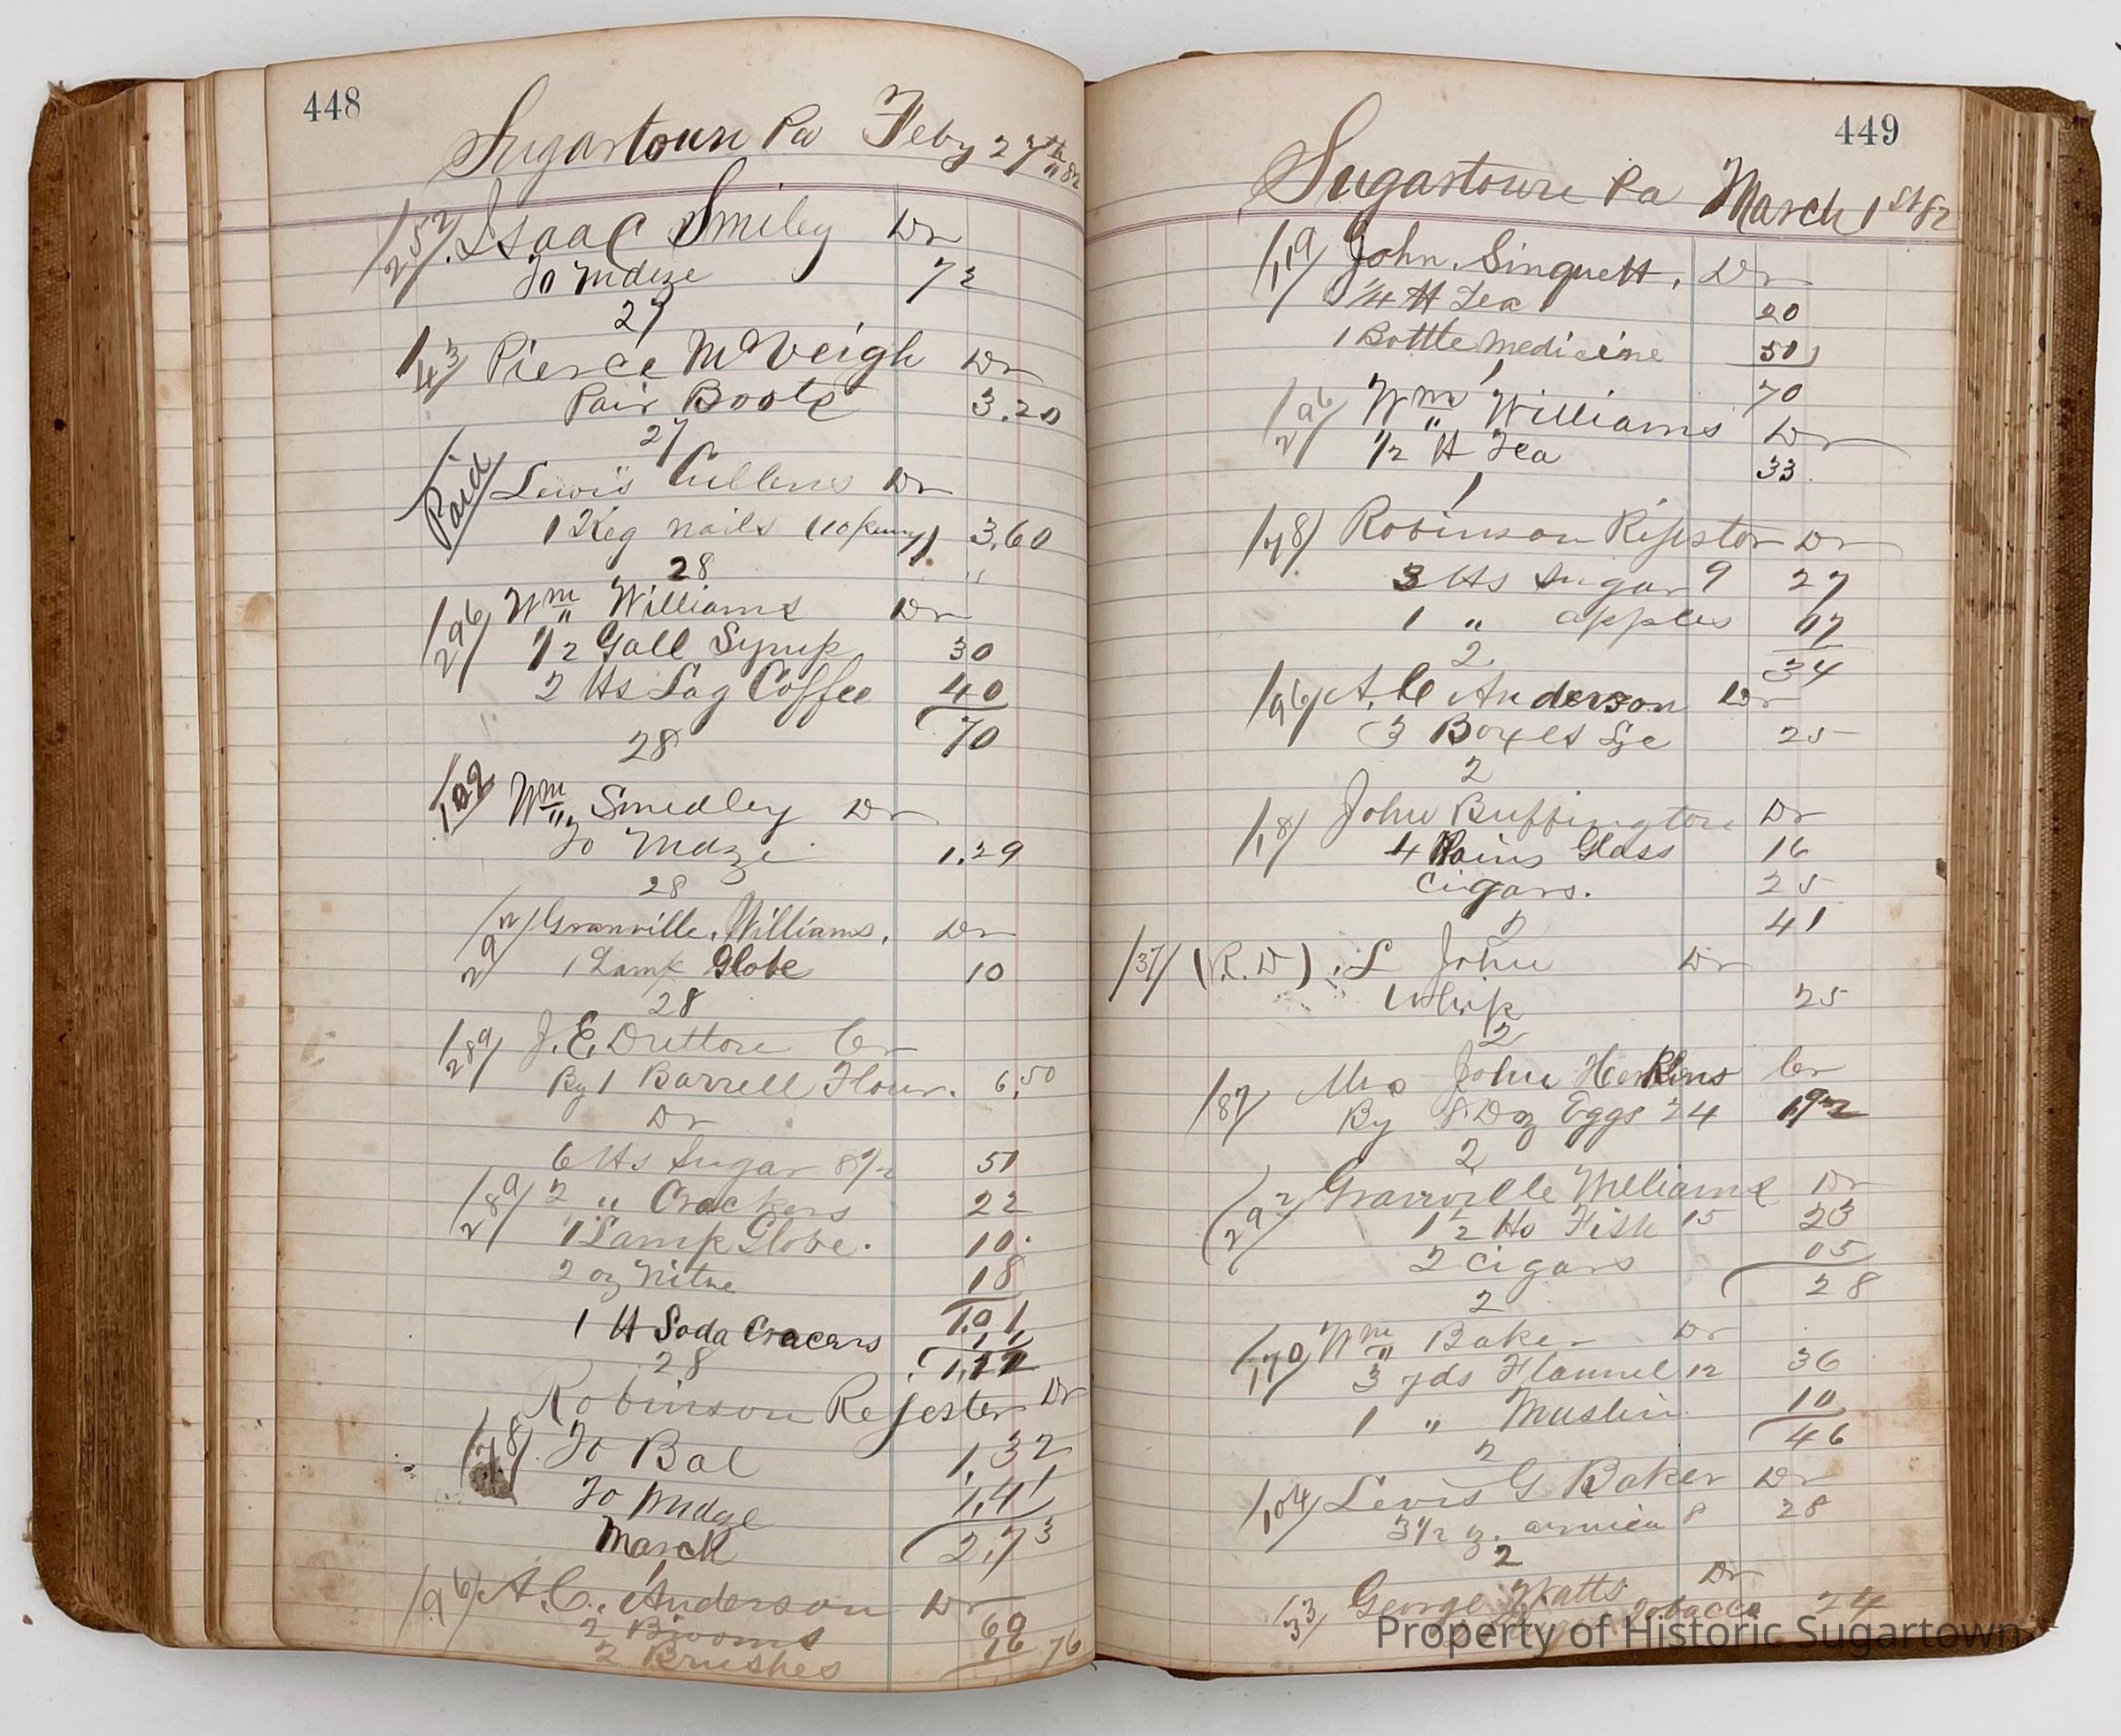 448
Sugartown Pa Feby 27th "82
/252/ Isaac Smiley Dr
To Mdze 73
27
/43/ Pierce McVeigh Dr
Pair Boots 3.20
27
Paid Lewis Cullens Dr
1 Keg nails (10 penny) 3,60
28
/296/ Wm Williams Dr
1/2 Gall Syrup 30
2 lbs Lag Coffee 40
70
28
/102 Wm Smedley Dr
To Mdze 1.29
28
/292/ Granville. Williams. Dr
1 Lamp Globe 10
28
/289/ J. E. Dutton Cr
By 1 Barrell Flour. 6,50
Dr
6 lbs Sugar 8 1/2 51
/289/ 2 " Crackers 22
1 Lamp Globe. 10.
2 oz Nitre 18
1.01
1 lb Soda Cracers 11
28 1,12
Robinson Rejester Dr
/78/. To Bal 1,32
To Mdze 1,41
March 2,73
1
/96/ A. C. Anderson Dr
2 Brooms 60
2 Brushes 16 76
449
Sugartown Pa March 1st 82
/119/ John. Sinquett. Dr
1/4 lb Tea 20
1 Bottle medicine 50
1 70
/296/ Wm Williams Dr
1/2 lb Tea 33
1
/78/ Robinson Rijestor Dr
3 lbs Sugar 9 27
1 " apples 07
2 34
/96/ A. C Anderson Dr
3 Boxes Lye 25
2
/18/ John Buffington Dr
4 Pains Glass 16
Cigars. 25
2 41
/37/ (R. D) . L John Dr
1 Whip 25
2
/87/ Mrs John Henkins Cr
By 8 Doz Eggs 24 1,92
2
/292 Granville Williams Dr
1 1/2 lbs Fish 15 23
2 Cigars 05
28
2
/170/ Wm Baker Dr
3 yds Flannel 12 36
1 " Muslin 10
2 46
/104/ Levis G Baker Dr
3 1/2 oz. arnica 8 28
2
/33/ George Watts Dr
Tobacco 24
Property of Historic Sugartown